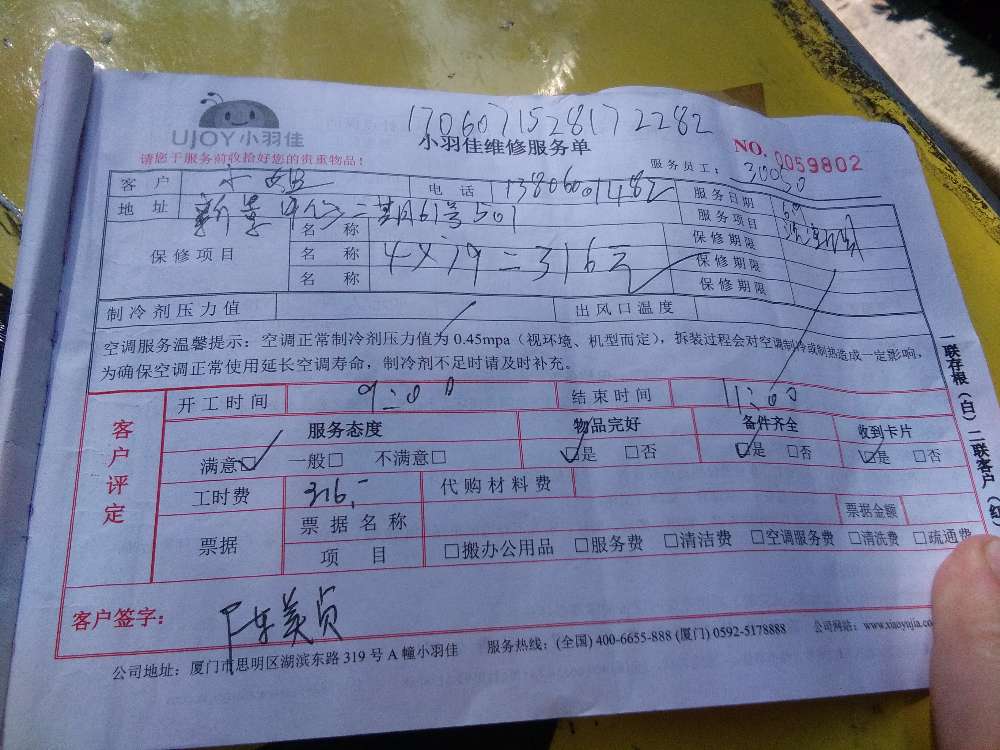 170607152817 2282
UJOY小羽佳
小羽佳维修服务单
NO. 0059802
请您于服务前收拾好您的贵重物品!
服务员工: 30050
客 户 电 话 13806001482 服务日期 6.9
地 址 二期61号501 服务项目
保修项目 名 称 保修期限
名 称 4×79=316元 保修期限
名 称 保修期限
制冷剂压力值 出风口温度
空调服务温馨提示:空调正常制冷剂压力值为0.45mpa(视环境、机型而定),拆装过程会对空调制冷或制热造成一定影响,
为确保空调正常使用延长空调寿命,制冷剂不足时请及时补充。
开工时间 9:00 结束时间 11:00
客户评定
服务态度 物品完好 备件齐全 收到卡片
满意□ 一般□ 不满意□ □是 □否 □是 □否 □是 □否
工时费 316,- 代购材料费
票据 票据名称 票据金额
项 目 □搬办公用品 □服务费 □清洁费 □空调服务费 □清洗费 □疏通费
客户签字: 陈美贞
公司地址:厦门市思明区湖滨东路319号A幢小羽佳 服务热线:(全国)400-6655-888(厦门)0592-5178888 公司网站:www.xiaoyujia.co
一联存根(白)二联客户(红